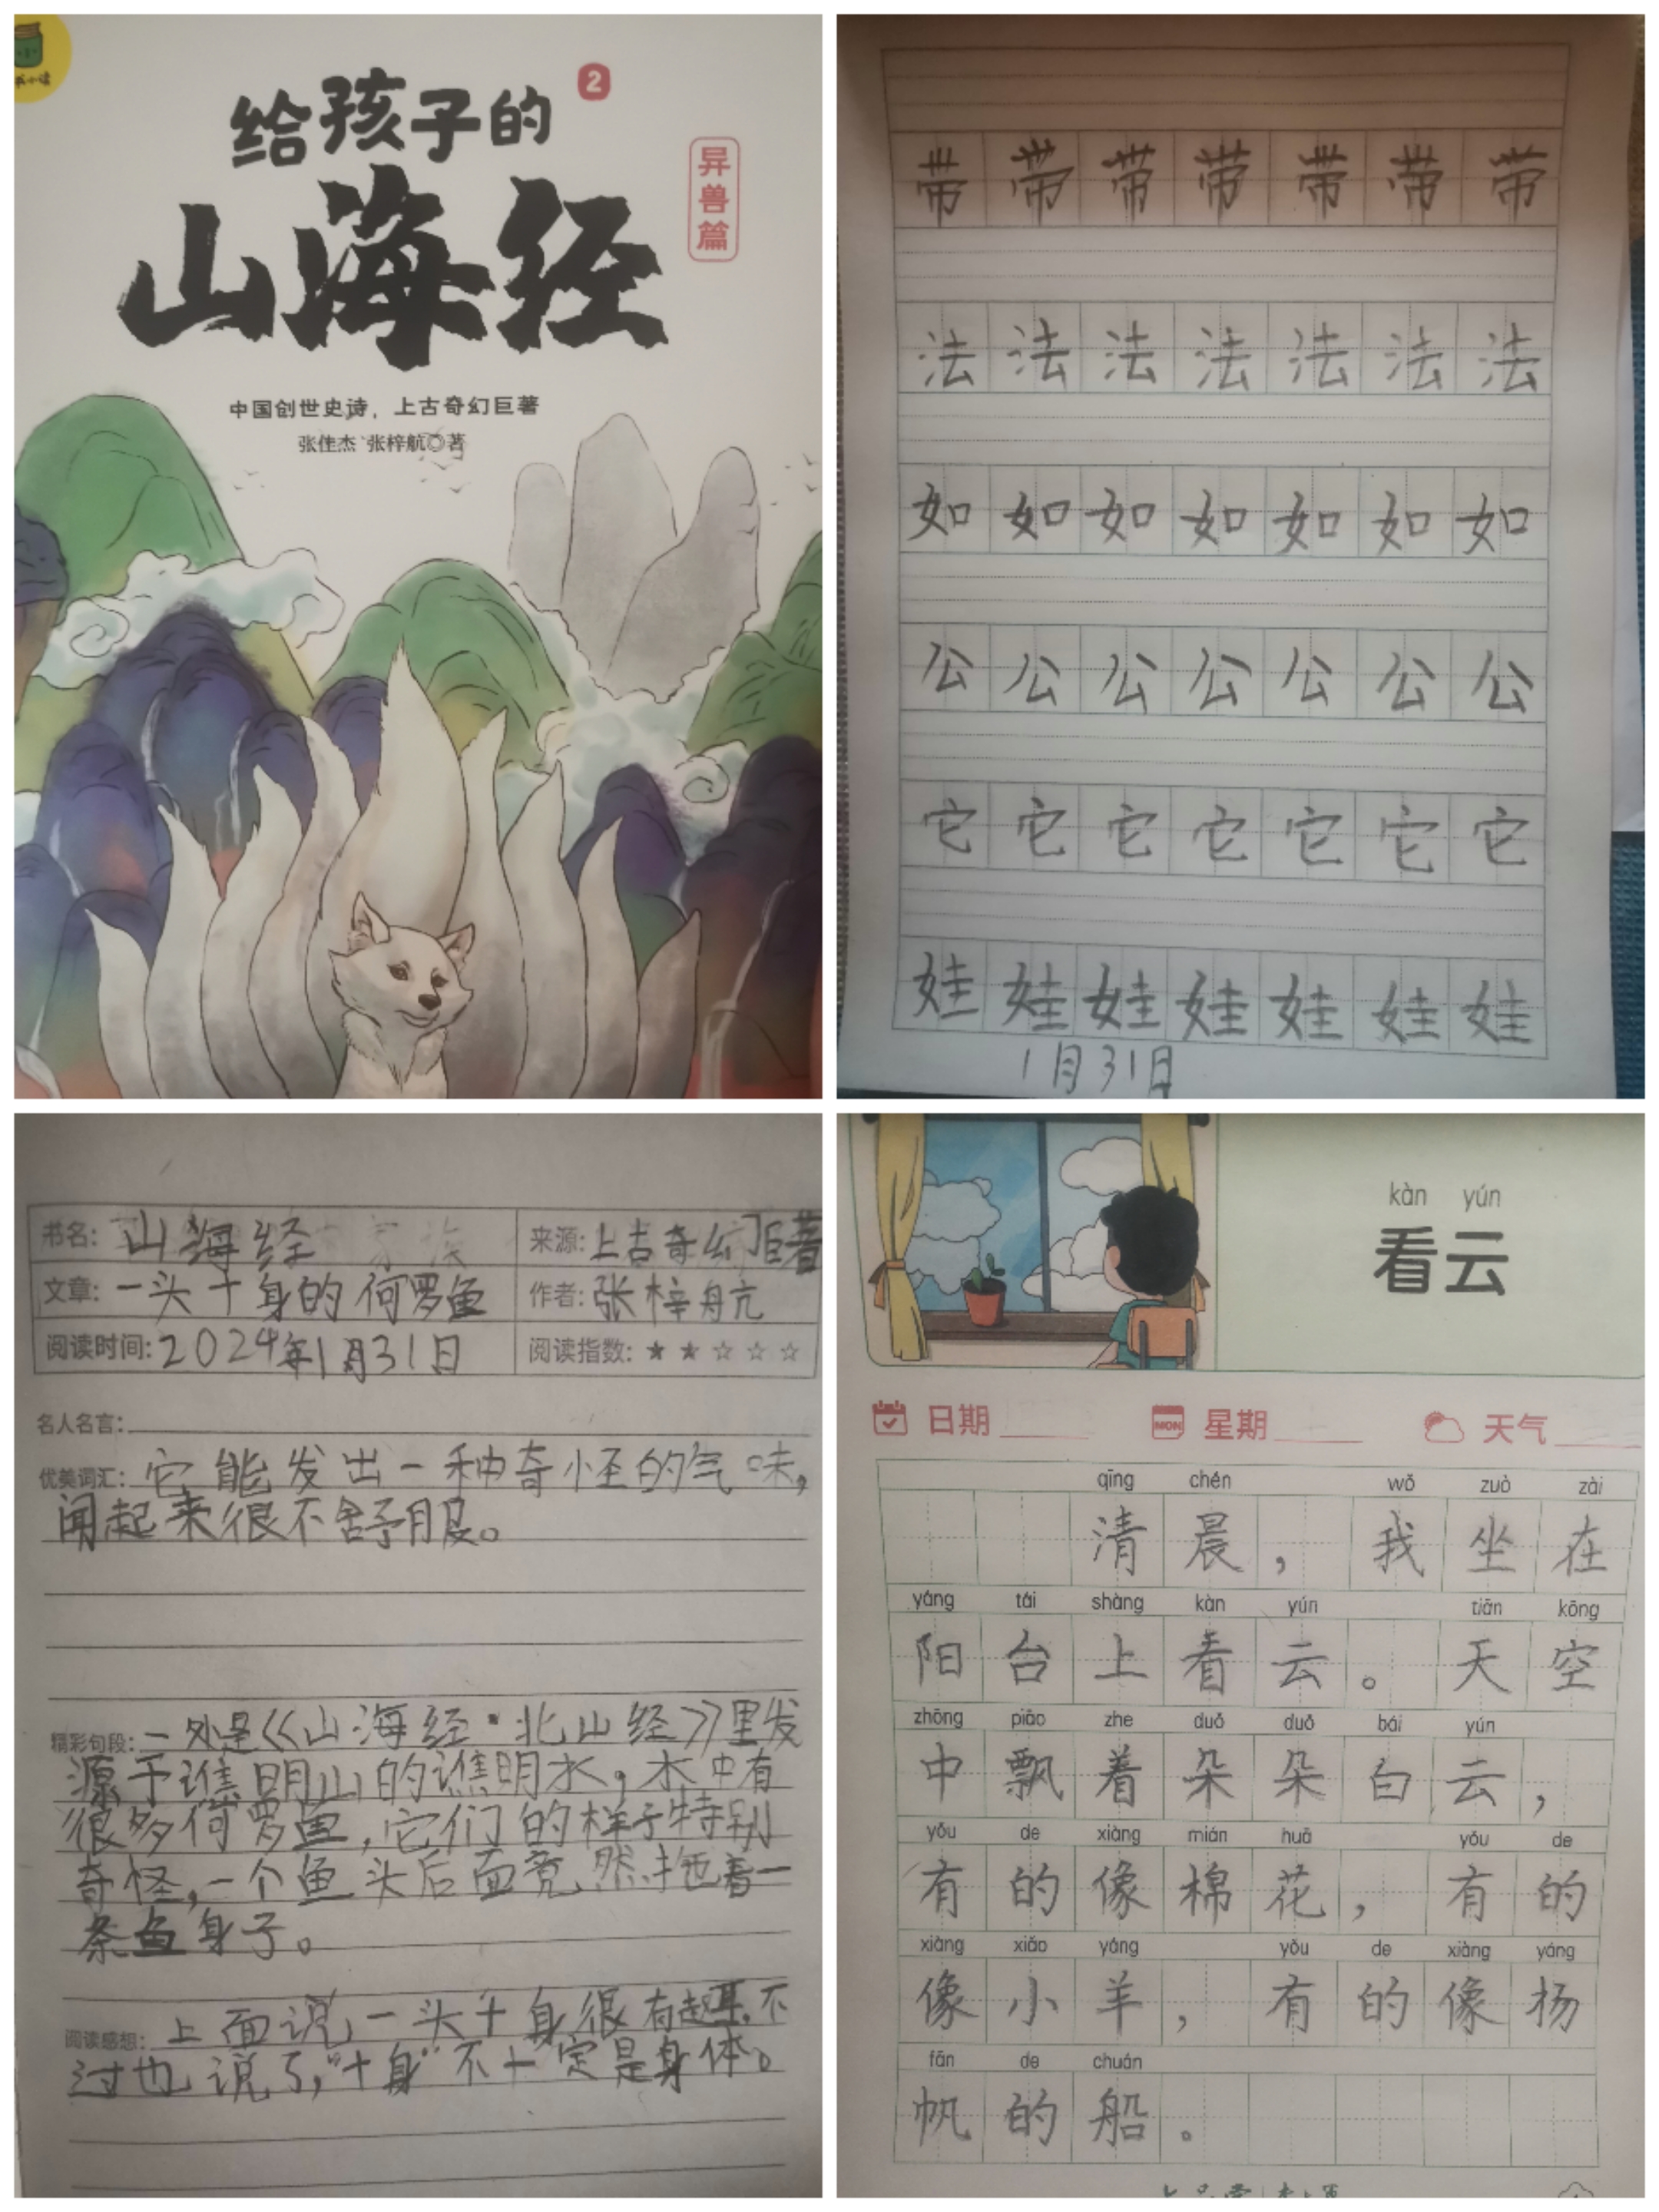 给孩子的
2
山海经
异兽篇
中国创世史诗，上古奇幻巨著
张佳杰 张梓航◎著
带 带 带 带 带 带 带
法 法 法 法 法 法 法
如 如 如 如 如 如 如
公 公 公 公 公 公 公
它 它 它 它 它 它 它
娃 娃 娃 娃 娃 娃 娃
1月31日
书名: 山海经 来源: 上古奇幻巨著
文章: 一头十身的何罗鱼 作者: 张梓航
阅读时间: 2024年1月31日 阅读指数: ★ ★ ☆ ☆ ☆
名人名言:
优美词汇: 它能发出一种奇怪的气味，
闻起来很不舒服。
精彩句段: 一处是《山海经·北山经》里发
源于谯明山的谯明水，水中有
很多何罗鱼，它们的样子特别
奇怪，一个鱼头后面竟然拖着一
条鱼身子。
阅读感想: 上面说一头十身很有趣，不
过也说了，"十身"不一定是身体。
kàn yún
看云
日期 星期 天气
MON
qīng chén wǒ zuò zài
清晨，我坐在
yáng tái shàng kàn yún tiān kōng
阳台上看云。天空
zhōng piāo zhe duǒ duǒ bái yún
中飘着朵朵白云，
yǒu de xiàng mián huā yǒu de
有的像棉花，有的
xiàng xiǎo yáng yǒu de xiàng yáng
像小羊，有的像扬
fān de chuán
帆的船。